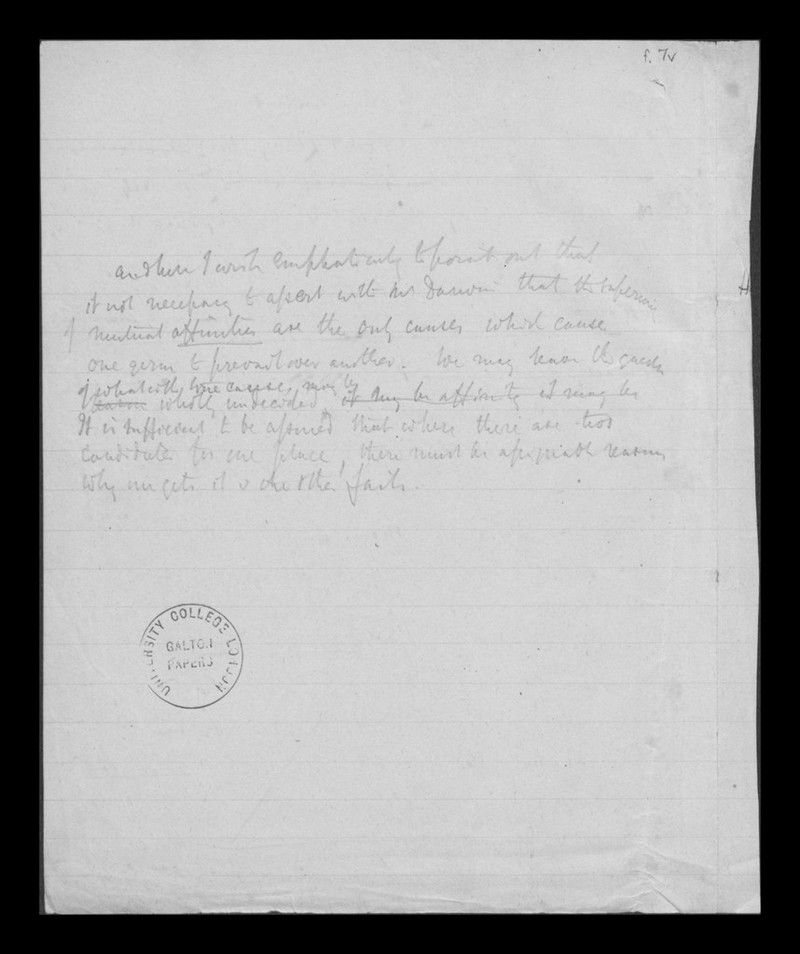 f. 7v
and here I wish emphatically to point out that
it not necessary to assert with Mr Darwin that the
of mutual affinities are the only causes which cause
one germ to prevail over another. We may leave the question
of what all these causes may be
wholly undecided, it may be affinity it may be
It is sufficient to be assured that where there are two
candidates for one place, there must be assignable reasons
why one gets it & the other fails.
H
UNIVERSITY COLLEGE LONDON
GALTON
PAPERS